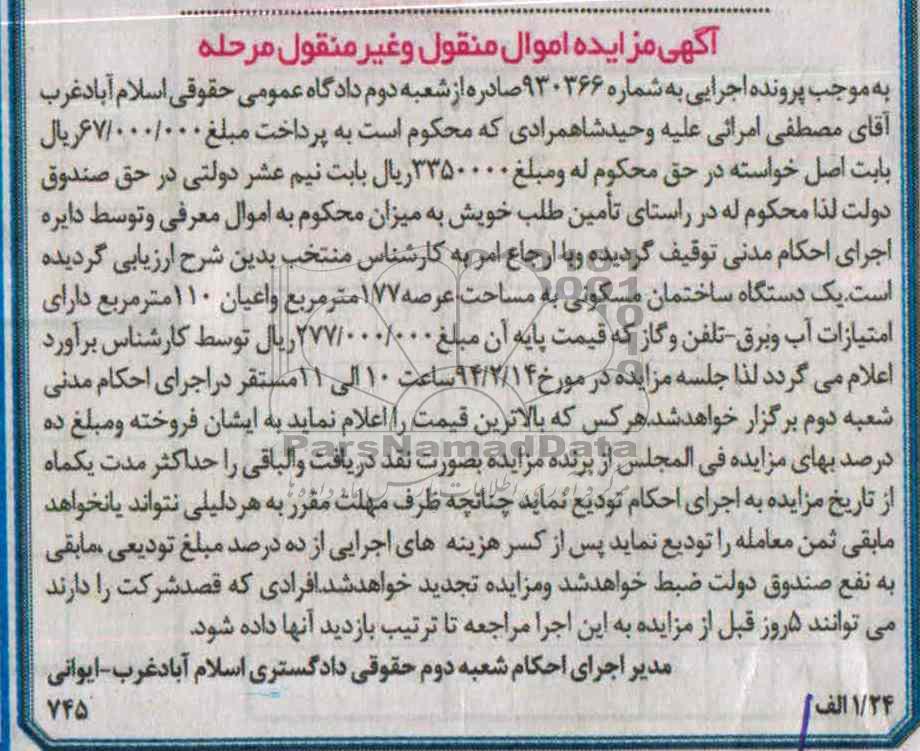 آگهی مزایده اموال منقول وغیر منقول مرحله
به موجب پرونده اجرایی به شماره ۹۳۰۳۶۶صادره ازشعبه دوم دادگاه عمومی حقوقی اسلام آبادغرب
آقای مصطفی امرائی علیه وحیدشاهمرادی که محکوم است به پرداخت مبلغ۶۷/۰۰۰/۰۰۰ریال
بابت اصل خواسته در حق محکوم له ومبلغ۳۳۵۰۰۰۰ریال بابت نیم عشر دولتی در حق صندوق
دولت لذا محکوم له در راستای تأمین طلب خویش به میزان محکوم به اموال معرفی وتوسط دایره
اجرای احکام مدنی توقیف گردیده وبا ارجاع امر به کارشناس منتخب بدین شرح ارزیابی گردیده
است.یک دستگاه ساختمان مسکونی به مساحت عرصه۱۷۷مترمربع واعیان ۱۱۰مترمربع دارای
امتیازات آب وبرق-تلفن وگاز که قیمت پایه آن مبلغ۲۷۷/۰۰۰/۰۰۰ریال توسط کارشناس برآورد
اعلام می گردد لذا جلسه مزایده در مورخ۹۴/۲/۱۴ساعت ۱۰ الی ۱۱مستقر دراجرای احکام مدنی
شعبه دوم برگزار خواهدشد.هرکس که بالاترین قیمت را اعلام نماید به ایشان فروخته ومبلغ ده
درصد بهای مزایده فی المجلس از برنده مزایده بصورت نقد دریافت والباقی را حداکثر مدت یکماه
از تاریخ مزایده به اجرای احکام تودیع نماید چنانچه ظرف مهلت مقرر به هردلیلی نتواند یانخواهد
مابقی ثمن معامله را تودیع نماید پس از کسر هزینه های اجرایی از ده درصد مبلغ تودیعی ،مابقی
به نفع صندوق دولت ضبط خواهدشد ومزایده تجدید خواهدشد.افرادی که قصدشرکت را دارند
می توانند ۵روز قبل از مزایده به این اجرا مراجعه تا ترتیب بازدید آنها داده شود.
مدیر اجرای احکام شعبه دوم حقوقی دادگستری اسلام آبادغرب-ایوانی
۱/۲۴الف
۷۴۵
ParsNamadData